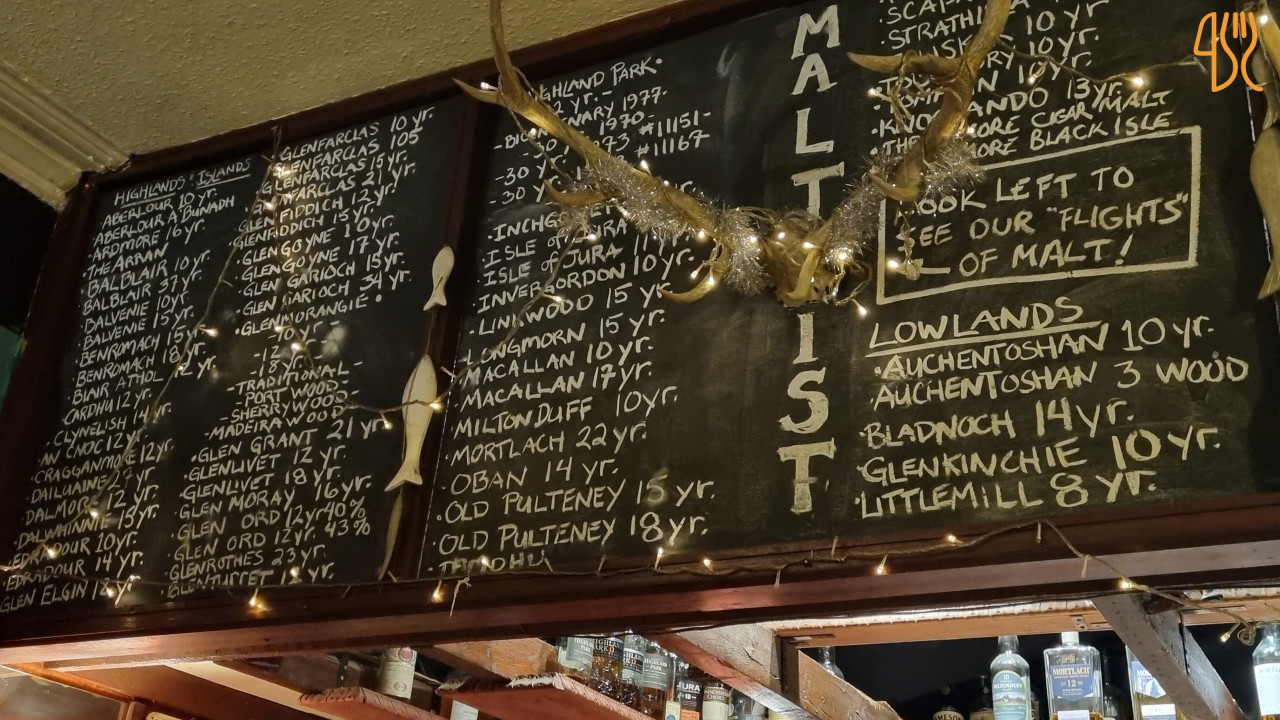 HIGHLANDS & ISLANDS
ABERLOUR 10 yr.
ABERLOUR A'BUNADH
ARDMORE 16 yr.
THE ARRAN
BALBLAIR 10 yr.
BALBLAIR 37 yr.
BALVENIE 15 yr.
BENROMACH 15 yr.
BENROMACH 18 yr.
BLAIR ATHOL 12 yr.
CARDHU 12 yr.
CLYNELISH 14 yr.
AN CNOC 12 yr.
CRAGGANMORE 12 yr.
DAILUAINE 27 yr.
DALMORE 12 yr.
DALWHINNIE 15 yr.
EDRADOUR 10 yr.
EDRADOUR 14 yr.
GLEN ELGIN
GLENFARCLAS 10 yr.
GLENFARCLAS 105
GLENFARCLAS 15 yr.
GLENFARCLAS 21 yr.
GLENFIDDICH 12 yr.
GLENFIDDICH 15 yr.
GLENGOYNE 10 yr.
GLENGOYNE 17 yr.
GLEN GARIOCH 15 yr.
GLEN GARIOCH 34 yr.
GLENMORANGIE
-10 yr-
-18 yr-
-TRADITIONAL-
-PORT WOOD-
-SHERRY WOOD-
-MADEIRA WOOD-
GLEN GRANT 21 yr.
GLENLIVET 12 yr.
GLENLIVET 18 yr.
GLEN MORAY 16 yr.
GLEN ORD 12 yr 40%
GLEN ORD 12 yr. 43%
GLENROTHES 23 yr.
GLENTURRET
HIGHLAND PARK
1977-
1970-
#11151-
-30 yr. #11167
-30
ISLE of JURA
ISLE of JURA
INVERGORDON 10 yr.
LINKWOOD 15 yr.
LONGMORN 15 yr.
MACALLAN 10 yr.
MACALLAN 17 yr.
MILTON DUFF 10 yr.
MORTLACH 22 yr.
OBAN 14 yr.
OLD PULTENEY 15 yr.
OLD PULTENEY 18 yr.
MALT
IST
10 yr
10 yr.
10 yr.
13 yr.
CIGAR MALT
BLACK ISLE
LEFT TO
SEE OUR "FLIGHTS"
OF MALT!
LOWLANDS
AUCHENTOSHAN 10 yr.
AUCHENTOSHAN 3 WOOD
BLADNOCH 14 yr.
GLENKINCHIE 10 yr.
LITTLEMILL 8 yr.
JURA
MORTLACH
12